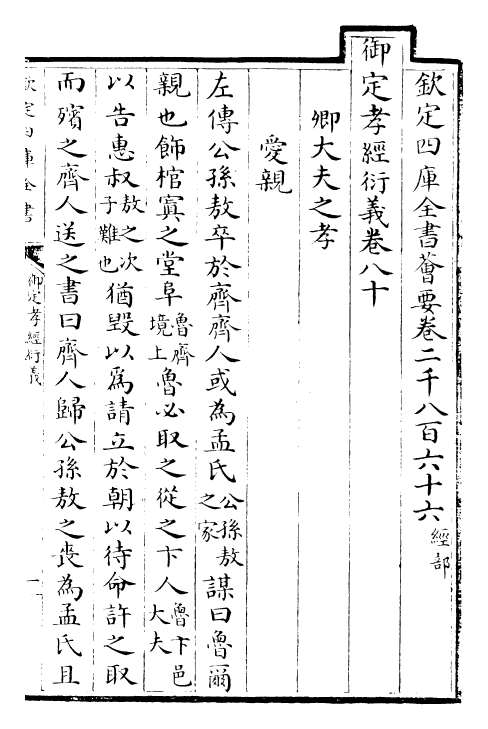 欽定四庫全書薈要卷二千八百六十六經部
御定孝經衍義卷八十
卿大夫之孝
愛親
左傳公孫敖卒於齊齊人或為孟氏公孫敖之家謀曰魯爾
親也飾棺寘之堂阜魯齊境上魯必取之從之卞人魯卞邑大夫
以告惠叔敖之次子難也猶毀以爲請立於朝以待命許之取
而殯之齊人送之書曰齊人歸公孫敖之喪為孟氏且
欽定四庫全書
御定孝經衍義
一